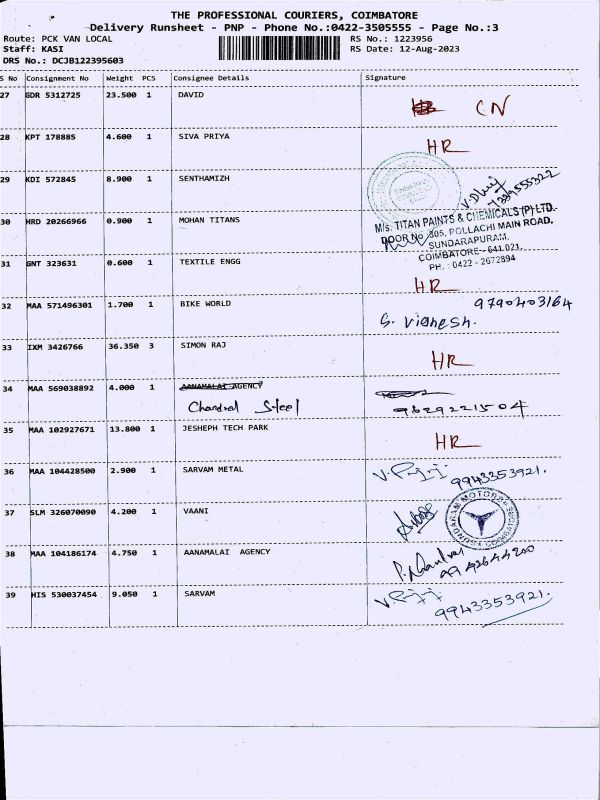 THE PROFESSIONAL COURIERS, COIMBATORE
Delivery Runsheet - PNP - Phone No.:0422-3505555 - Page No.:3
Route: PCK VAN LOCAL RS No.: 1223956
Staff: KASI RS Date: 12-Aug-2023
DRS No.: DCJB122395603
S No Consignment No Weight PCS Consignee Details Signature
27 GDR 5312725 23.500 1 DAVID HR CN
28 KPT 178885 4.600 1 SIVA PRIYA HR
29 KDI 572845 8.900 1 SENTHAMIZH 7339555322
30 HRD 20266966 0.900 1 MOHAN TITANS
M/s. TITAN PAINTS & CHEMICALS (P) LTD.
DOOR No 305, POLLACHI MAIN ROAD,
SUNDARAPURAM,
COIMBATORE - 641 021.
PH. : 0422 - 2672894
31 GNT 323631 0.600 1 TEXTILE ENGG HR
32 MAA 571496301 1.700 1 BIKE WORLD 9790403164
S. Vignesh.
33 IXM 3426766 36.350 3 SIMON RAJ HR
34 MAA 569038892 4.000 1 AANAMALAI AGENCY
Chandral Steel 9629221504
35 MAA 102927671 13.800 1 JESHEPH TECH PARK HR
36 MAA 104428500 2.900 1 SARVAM METAL 9943353921.
37 SLM 326070090 4.200 1 VAANI
SUNDARAM MOTORS
COIMBATORE
38 MAA 104186174 4.750 1 AANAMALAI AGENCY 9942644200
39 HIS 530037454 9.050 1 SARVAM 9943353921.